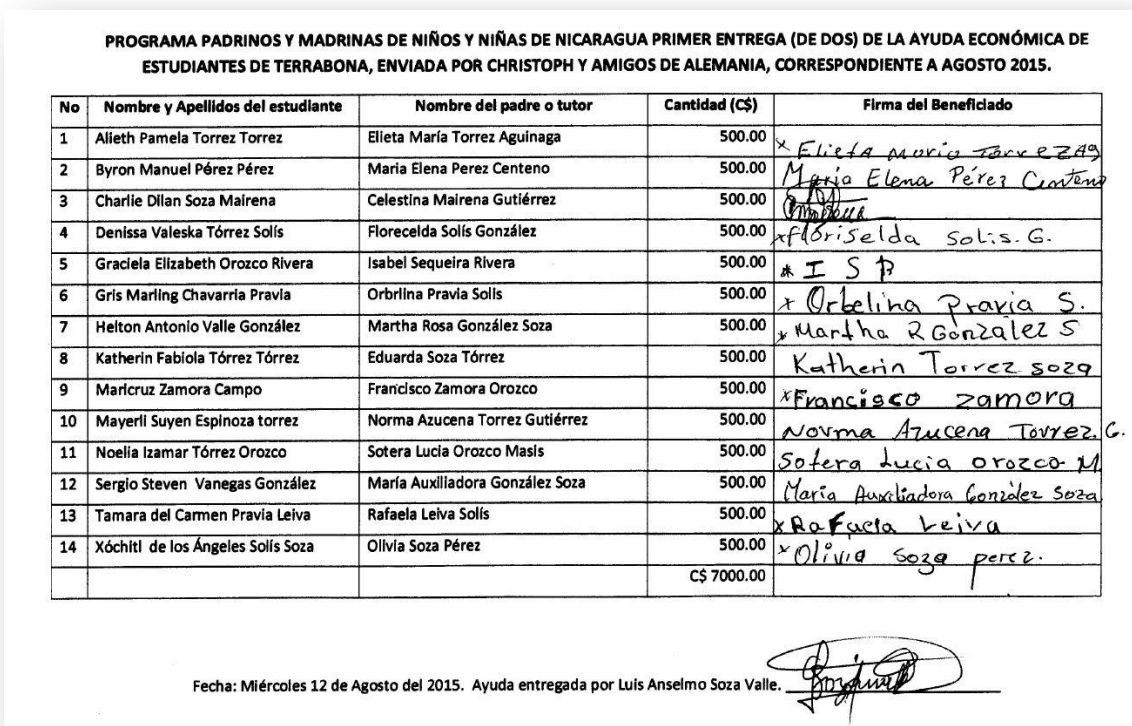 PROGRAMA PADRINOS Y MADRINAS DE NIÑOS Y NIÑAS DE NICARAGUA PRIMER ENTREGA (DE DOS) DE LA AYUDA ECONÓMICA DE
ESTUDIANTES DE TERRABONA, ENVIADA POR CHRISTOPH Y AMIGOS DE ALEMANIA, CORRESPONDIENTE A AGOSTO 2015.
No Nombre y Apellidos del estudiante Nombre del padre o tutor Cantidad (C$) Firma del Beneficiado
1 Alieth Pamela Torrez Torrez Elieta María Torrez Aguinaga 500.00 x Elieta Maria Torrez Ag
2 Byron Manuel Pérez Pérez Maria Elena Perez Centeno 500.00 Maria Elena Pérez Centeno
3 Charlie Dilan Soza Mairena Celestina Mairena Gutiérrez 500.00
4 Denissa Valeska Tórrez Solís Florecelda Solís González 500.00 x floriselda Solis. G.
5 Graciela Elizabeth Orozco Rivera Isabel Sequeira Rivera 500.00 * I S R
6 Gris Marling Chavarria Pravia Orbrlina Pravia Solis 500.00 x Orbelina Pravia S.
7 Helton Antonio Valle González Martha Rosa González Soza 500.00 x Martha R González S
8 Katherin Fabiola Tórrez Tórrez Eduarda Soza Tórrez 500.00 Katherin Torrez soza
9 Maricruz Zamora Campo Francisco Zamora Orozco 500.00 x Francisco zamora
10 Mayerli Suyen Espinoza torrez Norma Azucena Torrez Gutiérrez 500.00 Norma Azucena Torrez. G.
11 Noelia Izamar Tórrez Orozco Sotera Lucia Orozco Masis 500.00 Sotera Lucia orozco M
12 Sergio Steven Vanegas González María Auxiliadora González Soza 500.00 María Auxiliadora González Soza
13 Tamara del Carmen Pravia Leiva Rafaela Leiva Solís 500.00 x Rafaela Leiva
14 Xóchitl de los Ángeles Solís Soza Olivia Soza Pérez 500.00 x Olivia soza perez.
C$ 7000.00
Fecha: Miércoles 12 de Agosto del 2015. Ayuda entregada por Luis Anselmo Soza Valle.